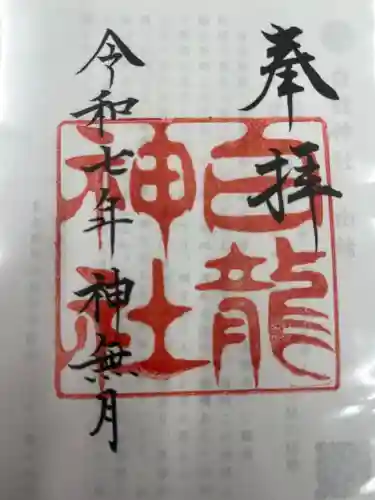 奉拝
白龍
神社
令和七年 神無月